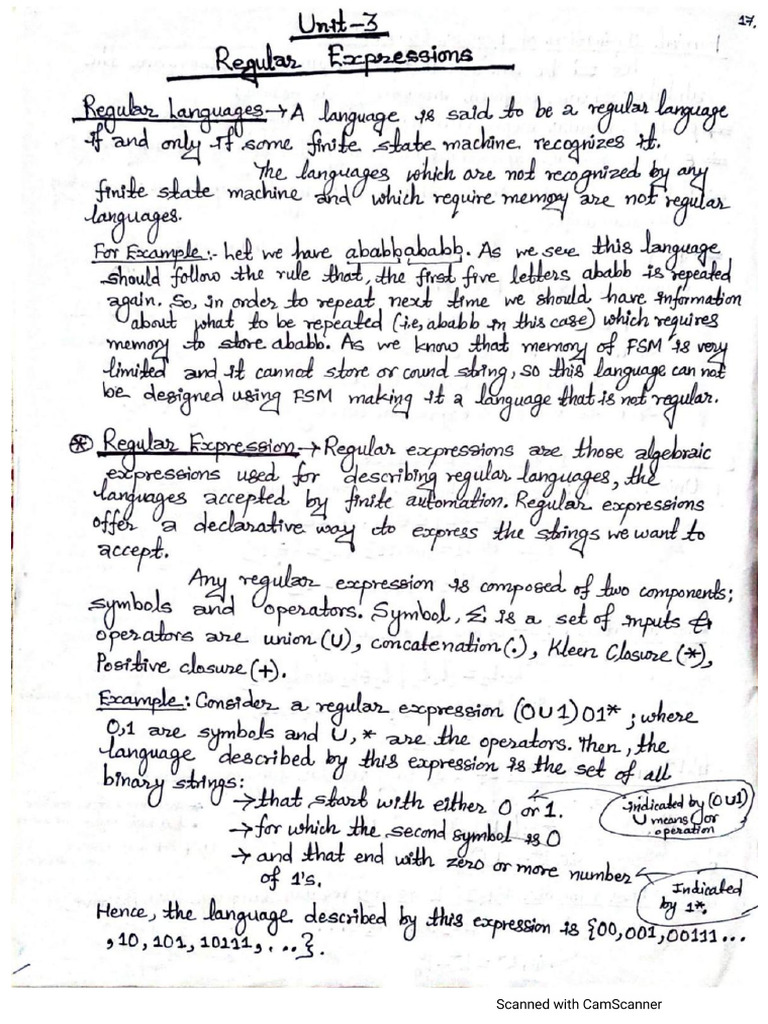 17.
Unit-3
Regular Expressions
Regular Languages → A language is said to be a regular language
if and only if some finite state machine recognizes it.
The languages which are not recognized by any
finite state machine and which require memory are not regular
languages.
For Example:- Let we have ababbababb. As we see this language
should follow the rule that, the first five letters ababb is repeated
again. So, in order to repeat next time we should have information
about what to be repeated (i.e, ababb in this case) which requires
memory to store ababb. As we know that memory of FSM is very
limited and it cannot store or cound string, so this language can not
be designed using FSM making it a language that is not regular.
* Regular Expression → Regular expressions are those algebraic
expressions used for describing regular languages, the
languages accepted by finite automation. Regular expressions
offer a declarative way do express the strings we want to
accept.
Any regular expression is composed of two components;
symbols and operators. Symbol, Σ is a set of inputs &
operators are union (U), concatenation (.), Kleen Closure (*),
Positive closure (+).
Example: Consider a regular expression (0U1)01* ; where
0,1 are symbols and U, * are the operators. Then, the
language described by this expression is the set of all
binary strings:
→ that start with either 0 or 1.
Indicated by (0U1)
U means or
operation
→ for which the second symbol is 0
→ and that end with zero or more number
of 1's.
Indicated
by 1*.
Hence, the language described by this expression is {00,001,00111...
,10, 101, 10111, ...}.
Scanned with CamScanner